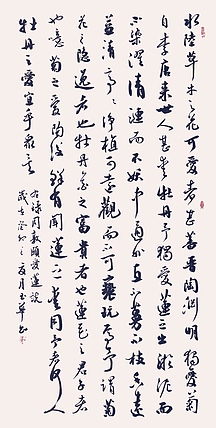 水陸草木之花可愛者甚蕃晉陶渊明獨愛菊
自李唐来世人甚愛牡丹予獨愛蓮之出淤泥而
不染濯清漣而不妖中通外直不蔓不枝香遠
益清亭亭净植可遠觀而不可褻玩焉予謂菊
花之隐逸者也牡丹花之富貴者也蓮花之君子者
也噫菊之愛陶後鲜有聞蓮之愛同予者何人
牡丹之愛宜乎衆矣
右録周敦頤愛蓮説
歲在癸卯之夏月